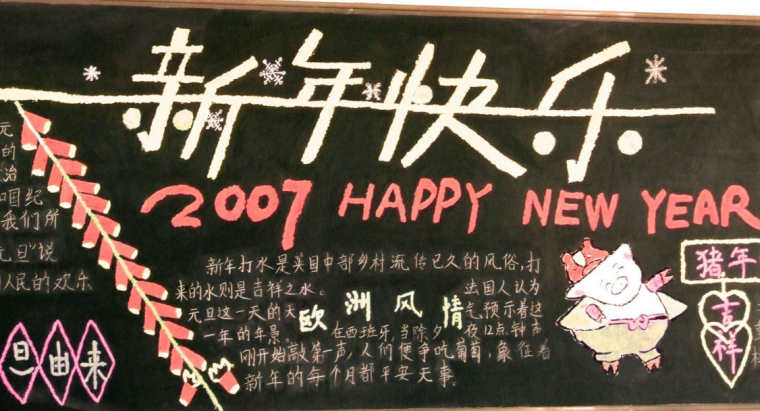 新年快乐
2007 HAPPY NEW YEAR
元
的
治
和国纪
我们所
元旦"说
人民的欢乐
旦由来
新年打水是英国中部乡村流传已久的风俗,打
来的水则是吉祥之水。
法国人认为
元旦这一天的天
气预示着这
一年的年景。
欧洲风情
在西班牙,当除夕夜12点钟市
刚开始敲第一声,人们便争吃葡萄,象征着
新年的每个月都平安无事。
猪年
吉祥